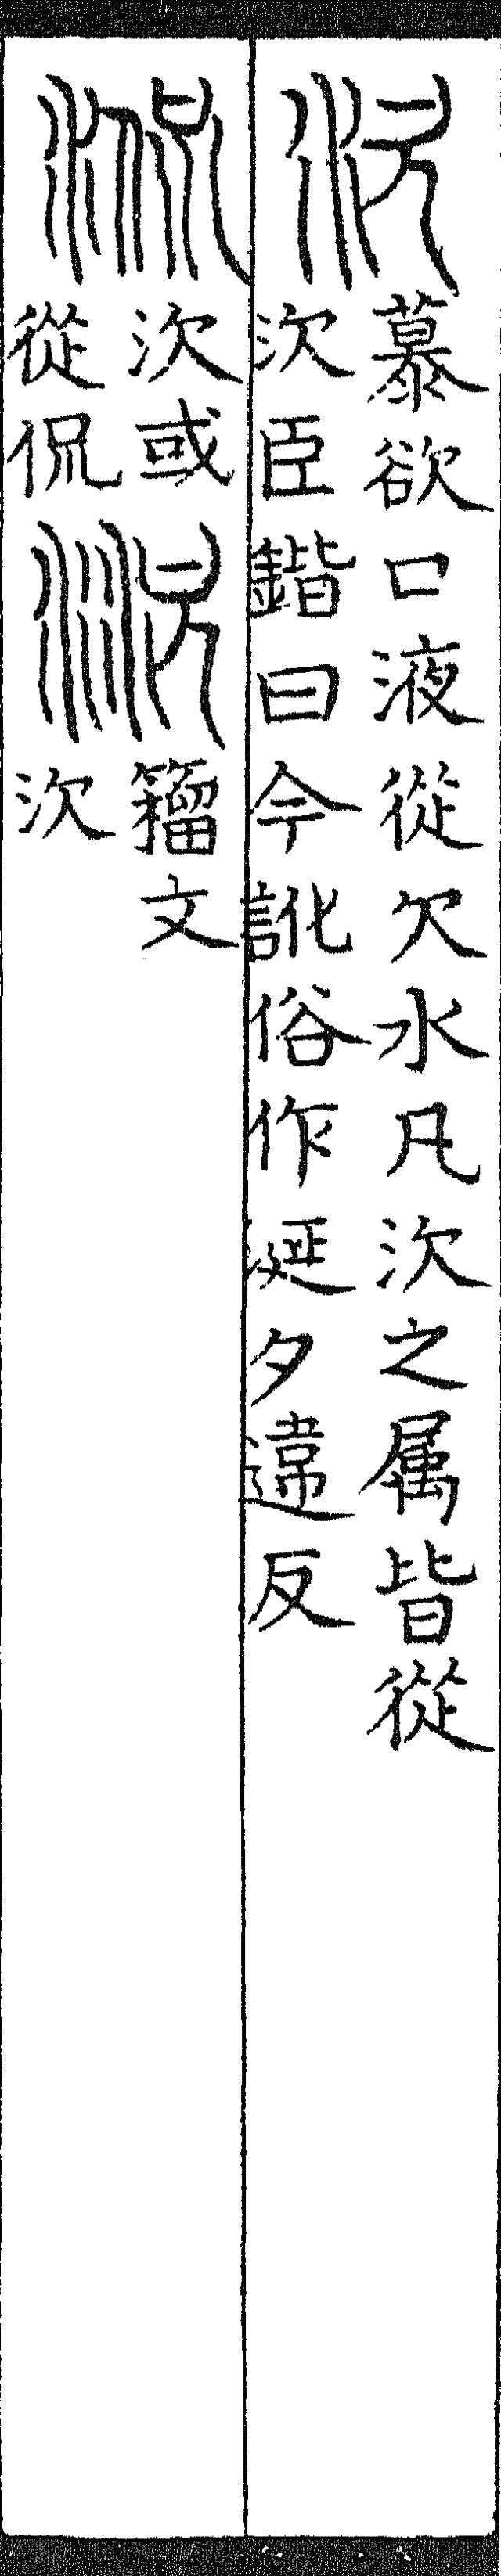 㳄
慕欲口液從欠水凡㳄之属皆從
㳄臣鍇曰今訛俗作涎夕違反
㳄或
從侃
籀文
㳄